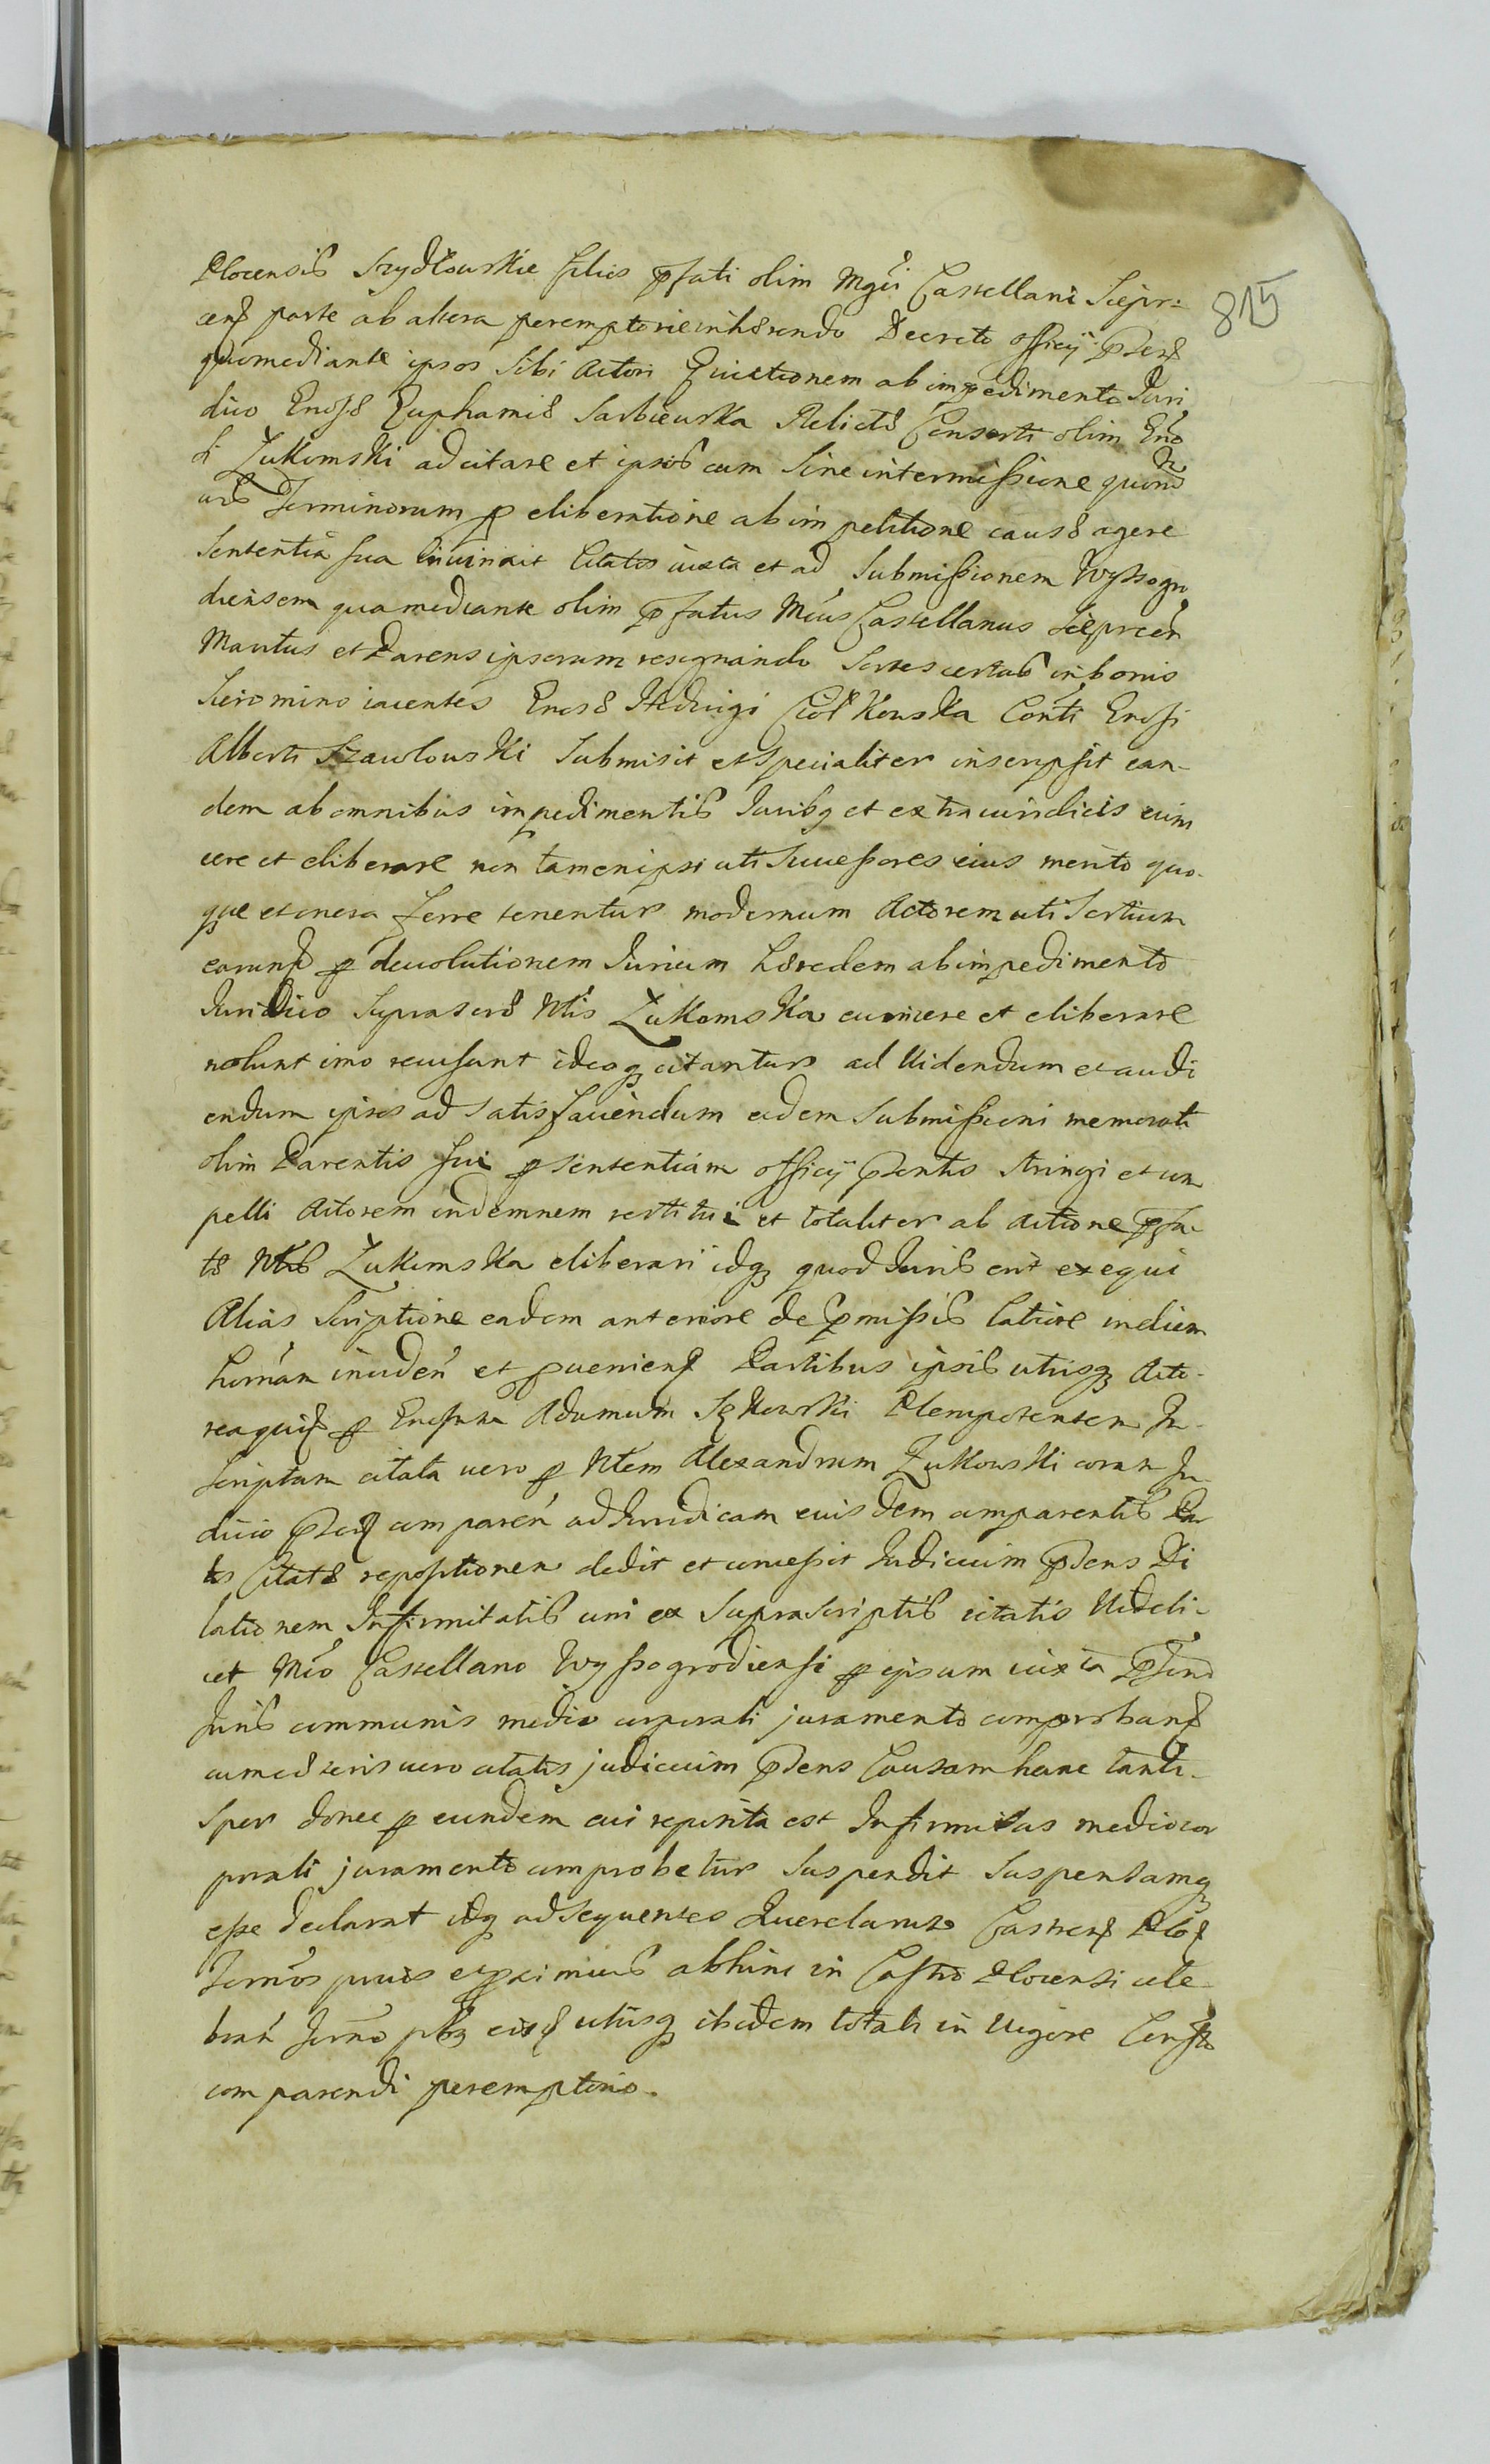 Plocensis Szydłowskie filios pfati olim Mgci Castellani Sierpr=
cens parte ab altera peremptorie inhærendo Decreto officij pñtis
quomediante ipsos sibi Actori Evictionem ab impedimento Juri
dico Enosæ Euphamiæ Sarbiewska Relictæ Consorti olim Eno
si Zukomski adcitare et ipsos cum sine intermissione quorū
uis Terminorum p eliberatione ab impetitione causæ agere
Sententia sua iniunxit Citatos iuxta et ad Submissionem Wyszogro
diensem qua mediante olim pfatus Mcus Castellanus Sierprcen
Maritus et Parens ipsorum resignando Sortes certas in bonis
Sieromino iacentes Enosæ Hedvigi Ciołkowska Conti Enosi
Alberti Szawlowski Submisit et specialiter inscripsit ean-
dem ab omnibus impedimentis Juribq et extraiuridicis euin
cere et eliberare non tamen ipsi uti Successores eius merito quo-
que et onera ferre tenentur modernum Actorem uti Tertium
earund p deuolutionem Jurium Hæredem ab impedimento
Juridico Suprascræ Nlis Zukomska euincere et eliberare
nolunt imo recusant ideoq citantur ad Uidendum et audi
endum ipsos ad satisfaciendum eidem Submissioni memorati
olim Parentis sui p Sententiam officij pñtis stringi et com
pelli Actorem indemnem restitui et totaliter ab actione pfa-
tæ Nlis Zukomska eliberari idq quod Juris erit exequi
Alias Scriptione eadem anteriore de pmissis latiore in diem
hornam inciden et pueniens Partibus ipsis utrisq Acto-
reaquis p Enosum Adamum Sękowski Plenipotentem In-
scriptum citata uero p Nlem Alexandrum Zukowski coram Ju-
dicio pñti comparen ad Juridicam eiusdem comparentis Par
tis Citatæ repositionem dedit et concessit Judicium pñens Di
lationem Infirmitatis uni ex Suprascriptis citatis Uideli-
cet Mco Castellano Wyszogrodiensi p ipsum iuxta
Juris communis medio corporali juramento comproband
cumcæteris uero citatis judicium pñens Causam hanc tanti-
sper donec p eundem cui reposita est Infirmitas mediocor
porali juramento comprobetur Suspendit Suspensamq
esse declarat idq ad sequentes Querelarum Castrens Ploc
Termos priores et pximius abhinc in Castro Plocensi cele
bran Termo ptibq eisd utrisq ibidem totali in Uigore
comparendi peremptorio.
815